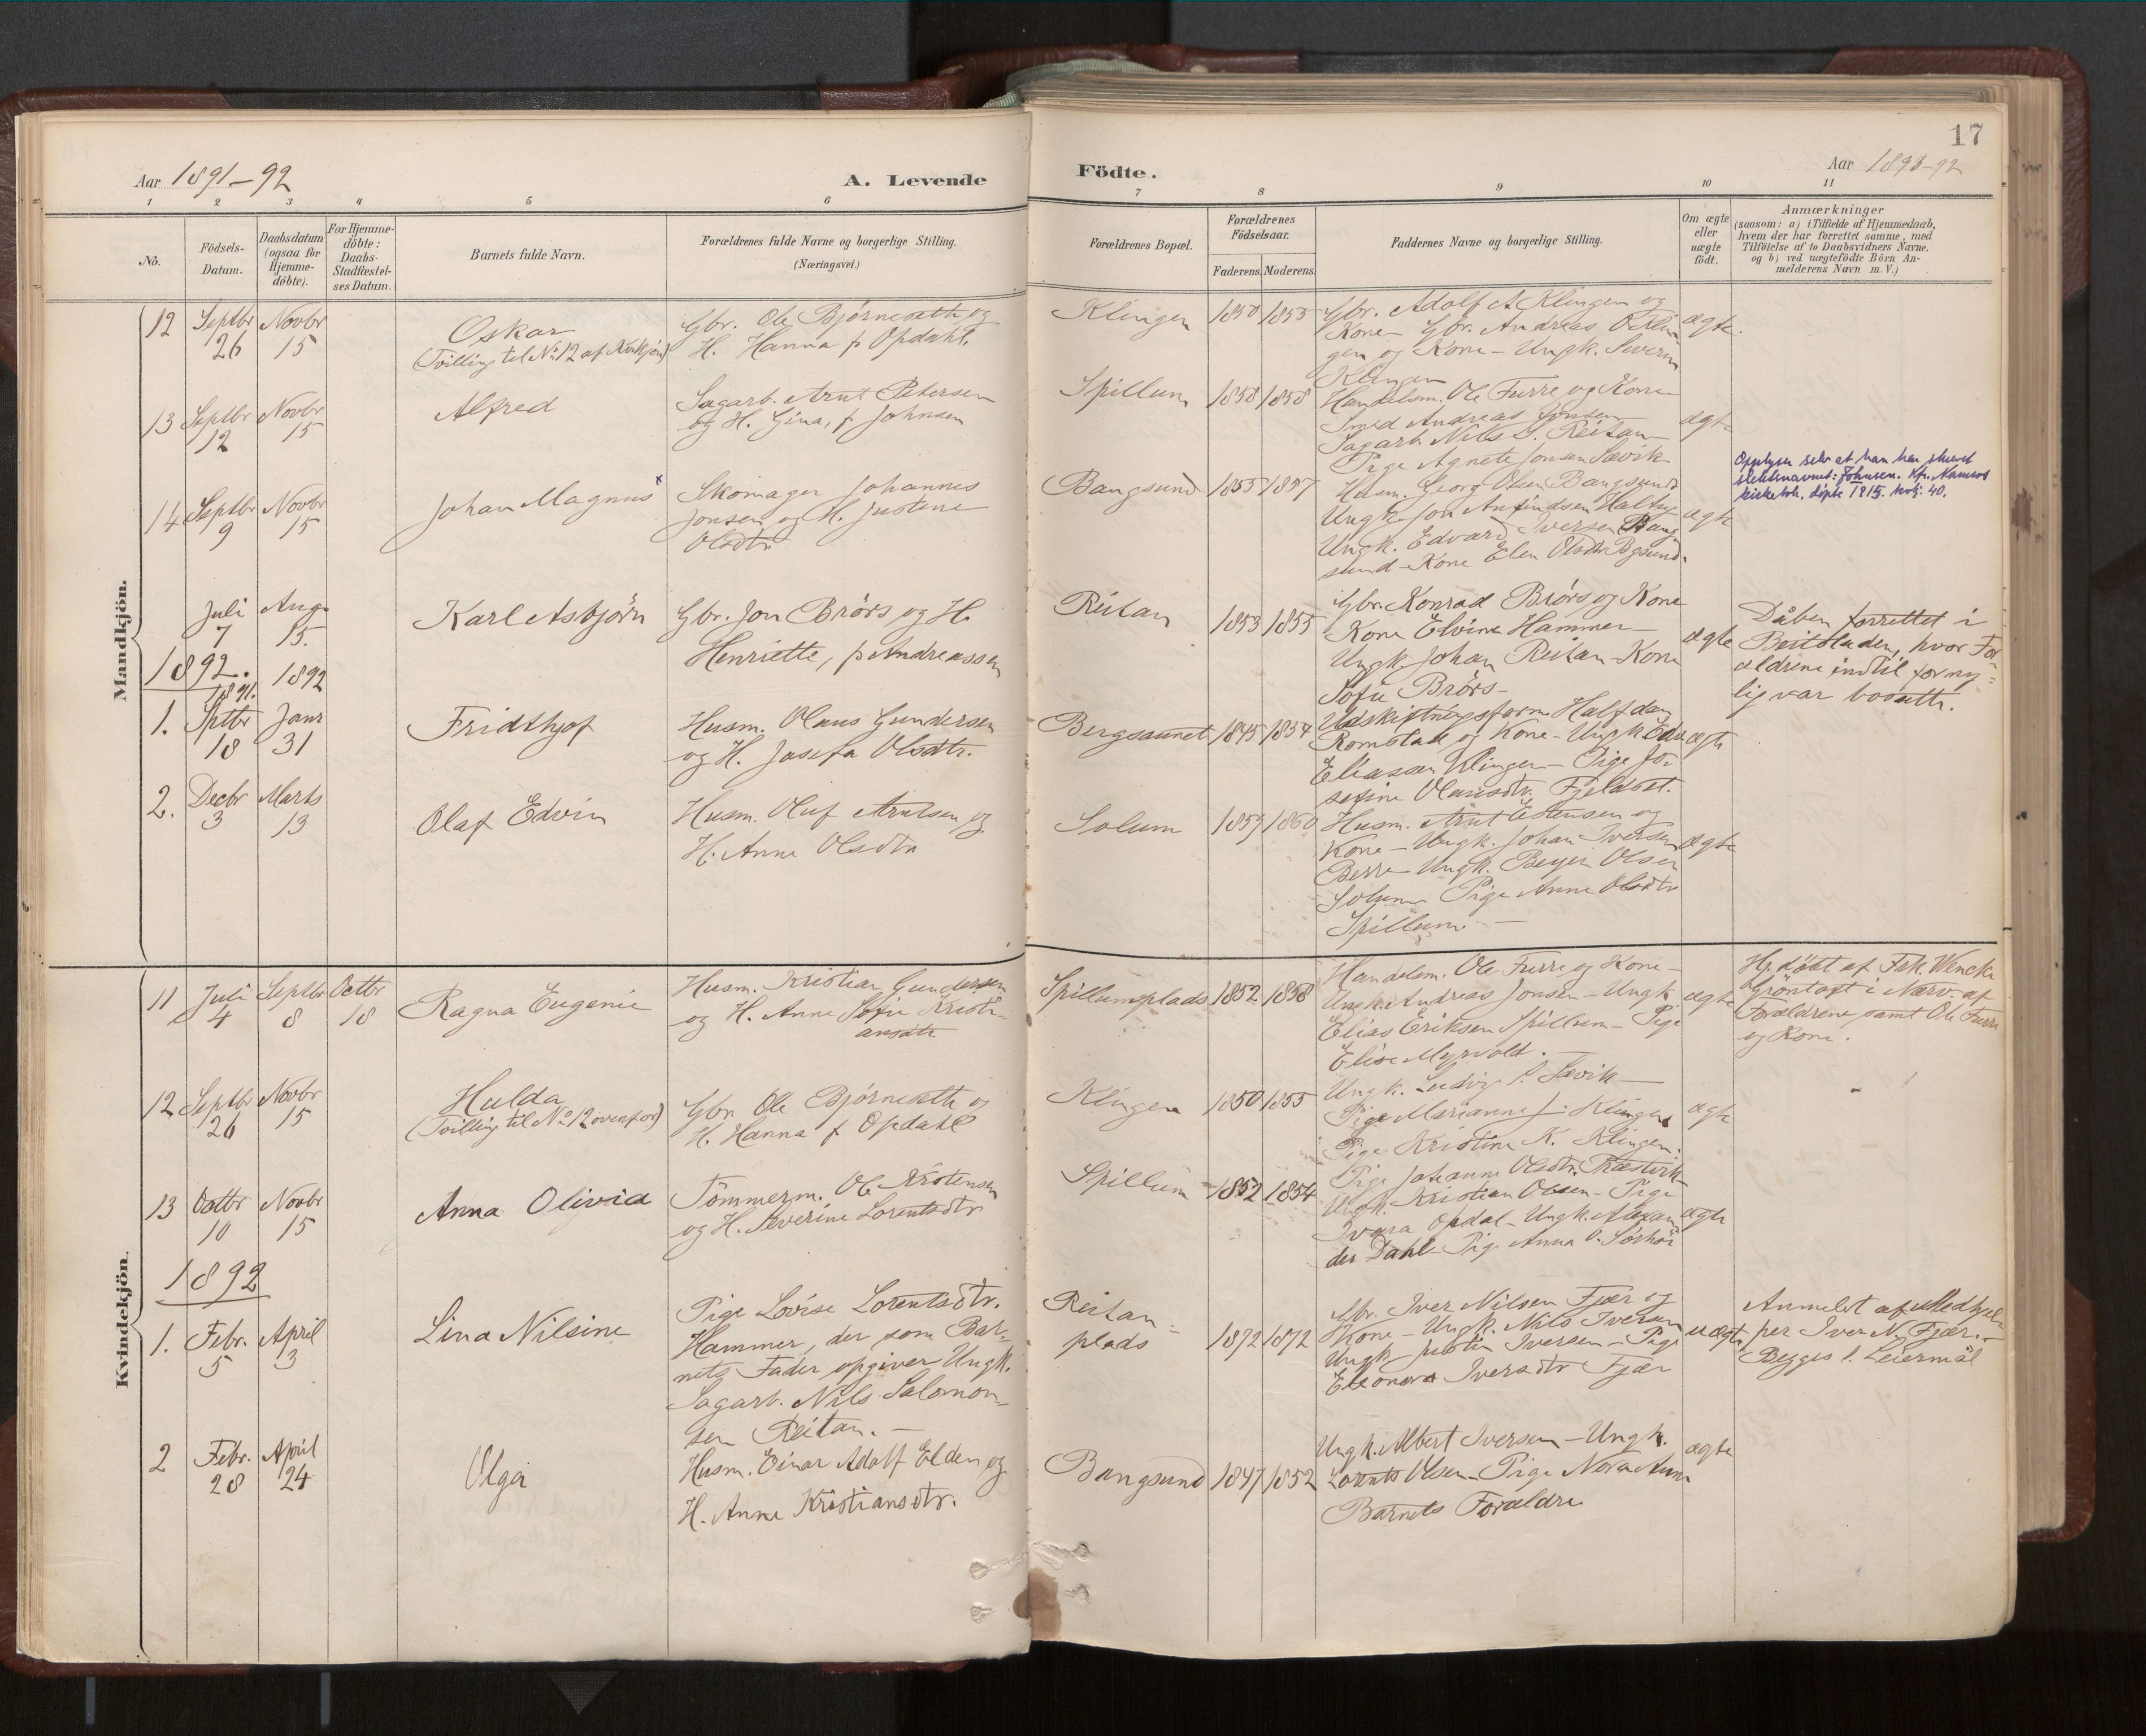 17
Aar 1891-92
A. Levende
Födte.
Aar 1893-92
1 2 3 4 5 6 7 8 9 10 11
No.
Födsels-Datum.
Daabsdatum (ogsaa for Hjemme-döbte).
For Hjemme-döbte: Daabs-Stadfæstel-ses Datum.
Barnets fulde Navn.
Forældrenes fulde Navne og borgerlige Stilling.
(Næringsvei.)
Forældrenes Bopæl.
Forældrenes Födselsaar.
Faderens. Moderens.
Faddernes Navne og borgerlige Stilling.
Om ægte eller uægte födt.
Anmærkninger
(saasom: a) i Tilfælde af Hjemmedaab,
hvem der har forrettet samme, med
Tilföielse af to Daabsvidners Navne,
og b) ved uægtefödte Börn An-
melderens Navn m. V.)
Mandkjön.
12 Septbr 26 Novbr 15
Oskar
(Tvilling til No 12 af Kvkjøn)
Gbr. Ole Bjørnesæth og
H. Hanna f. Opdahl.
Klingen 1850 1855
Gbr. Adolf A Klingen og
Kone - Gbr. Andreas O Klin-
gen og Kone - Ungk. Severin
Klingen
ægte.
13 Septbr 12 Novbr 15
Alfred
Sagarb. Arnt Petersen
og H. Gina, f. Johnsen
Spillum 1858 1858
Handelsm. Ole Furre og Kone
Smed Andreas Jonsen
Sagarb. Nils S. Reitan
Pige Agnete Jonsen Sævik
ægte
14 Septbr 9 Novbr 15
Johan Magnus x
Skomager Johannes
Jonsen og H. Justene
Olsdtr
Bangsund 1855 1857
Husm. Georg Olsen Bangsund
Ungk. Jon Anfindsen
Ungk. Edvard Iversen Bang
sund - Kone Elen Olsdtr Bgsund.
ægte
Opplyser selv at han har skrevet
slektsnavnet: Johnsen. Kfr. Namsos
kirkebok, døpte 1915. nr. 40.
Juli 7 Aug. 15.
Karl Asbjörn
Gbr. Jon Brörs og H.
Henriette, f. Andreassen
Reitan 1853 1855
Gbr. Konrad Brörs og Kone
Kone Elvine Hammer -
Ungk. Johan Reitan - Kone
Sofie Brörs -
ægte
Dåben forrettet i
Beitstaden, hvor For-
ældrene indtil forny-
lig var bosatte.
1892. 1892
1. 1891. Sptbr 18 Janr 31
Fridthjof
Husm. Olaus Gundersen
og H. Josefa Olsdtr.
Bergsaunet 1845 1854
Udskiftningsform. Halfdan
Romstad og Kone - Ungk Edv.
Eliassen Klingen - Pige Jo-
sefine Olausdtr. Fjeldset.
ægte
2. Decbr 3 Marts 13
Olaf Edvin
Husm. Oluf Arntsen og
H. Anne Olsdtr
Solum 1857 1860
Husm. Arnt Estensen og
Kone - Ungk. Johan Iversen
Berre - Ungk. Beyer Olsen
Solum Pige Anne Olsdtr
Spillum -
ægte
Kvindekjön.
11 Juli 4 Septbr 8 Octbr 18
Ragna Eugenie
Husm. Kristian Gundersen
og H. Anne Sofie Kristi-
ansdtr
Spillumsplads 1852 1858
Handelsm. Ole Furre og Kone -
Ungk. Andreas Jonsen - Ungk
Elias Eriksen Spillum - Pige
Elise Myrvold. -
ægte
Hj. döbt af Frk. Wencke
Gröntoft i Nærv. af
Forældrene samt Ole Furre
og Kone.
12 Septbr 26 Novbr 15
Hulda
(Tvilling til No 12 ovenfor)
Gbr. Ole Bjørnesæth og
H. Hanna f. Opdahl
Klingen 1850 1855
Ungk. Ludvig P. Sævik -
Pige Marianne J. Klingen
Pige Kristine K. Klingen.
Pige Johanne Olsdtr.
ægte
13 Octbr 10 Novbr 15
Anna Olivia
Tömmerm. Ole Kristensen
og H. Severine Lorentsdtr
Spillum 1852 1854
Ungk. Kristian Olsen - Pige
Ivara Opdal - Ungk. Alexan-
der Dahl - Pige Anna O. Sörhöi
ægte
1892
1. Febr. 5 April 3
Lina Nilsine
Pige Lovise Lorentsdtr.
Hammer, der som Bar-
nets Fader opgiver Ungk.
Sagarb. Nils Salomon-
sen Reitan. -
Reitan-
plads 1872 1872
Gbr. Iver Nilsen Fjær og
Kone - Ungk. Nils Iversen
Ungk. Justin Iversen - Pige
Eleonora Iversdtr Fjær
uægte
Anmeldt af Medhjæl-
per Iver N. Fjær. -
Begges 1. Leiermål
2 Febr. 28 April 24
Olga
Husm. Einar Adolf Elden og
H. Anne Kristiansdtr.
Bangsund 1847 1852
Ungk. Albert Iversen - Ungk.
Lorents Olsen - Pige Nora Aune
Barnets Forældre
ægte